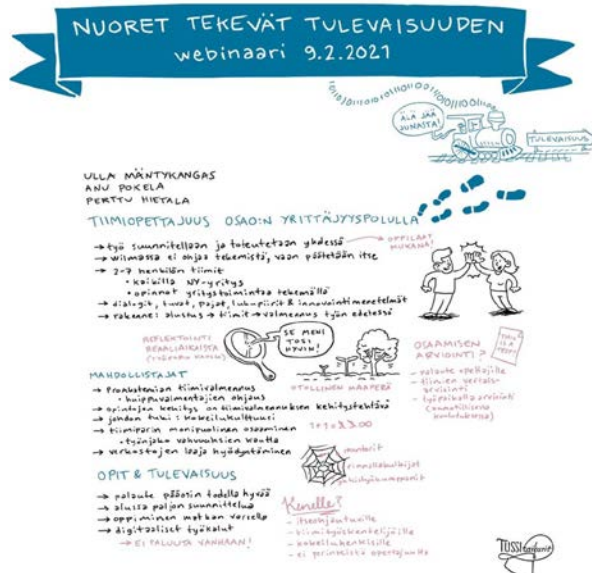 NUORET TEKEVÄT TULEVAISUUDEN
webinaari 9.2.2021
ÄLÄ JÄÄ
JUNASTA!
TULEVAISUUS
ULLA MÄNTYKANGAS
ANU POKELA
PERTTU HIETALA
TIIMIOPETTAJUUS OSAO:N YRITTÄJYYSPOLULLA
→ työ suunnitellaan ja toteutetaan yhdessä
OPPILAAT
MUKANA!
→ wilmassa ei ohjaa tekemistä, vaan päätetään itse
→ 2-7 henkilön tiimit
• kaikilla NY-yritys
• opinnot yritystoimintaa tekemällä
→ dialogit, luvat, pajat, lukupiirit & innovointimenetelmät
→ rakenne: alustus → tiimit → valmennus työn edetessä
REFLEKTOINTI
REAALIAIKAISTA
SE MENI
TOSI
HYVIN!
OTOLLINEN MAAPERÄ
OSAAMISEN
ARVIOINTI?
THIS
IS A
TEST!
- palaute opettajille
- tiimien vertais-
arviointi
- työpaikalla arviointi
MAHDOLLISTAJAT
→ Proakatemian tiimivalmennus
• huippuvalmentajien ohjaus
→ opintojen kehitys on tiimivalmennuksen kehitystehtävä
→ johdon tuki: kokeilukulttuuri
→ tiimiparin monipuolinen osaaminen
• työnjako vahvuuksien kautta
→ verkostojen laaja hyödyntäminen
mentorit
rinnallakulkijat
yhteistyökumppanit
OPIT & TULEVAISUUS
→ palaute pääosin todella hyvää
→ alussa paljon suunnittelua
→ oppiminen matkan varrella
→ digitaaliset työkalut
→ EI PALUUTA VANHAAN!
Kenelle?
- itseohjautuville
- tiimityöskentelijöille
- kokeilunhenkisille
- ei perinteistä opettajuutta
TUSSItaikurit